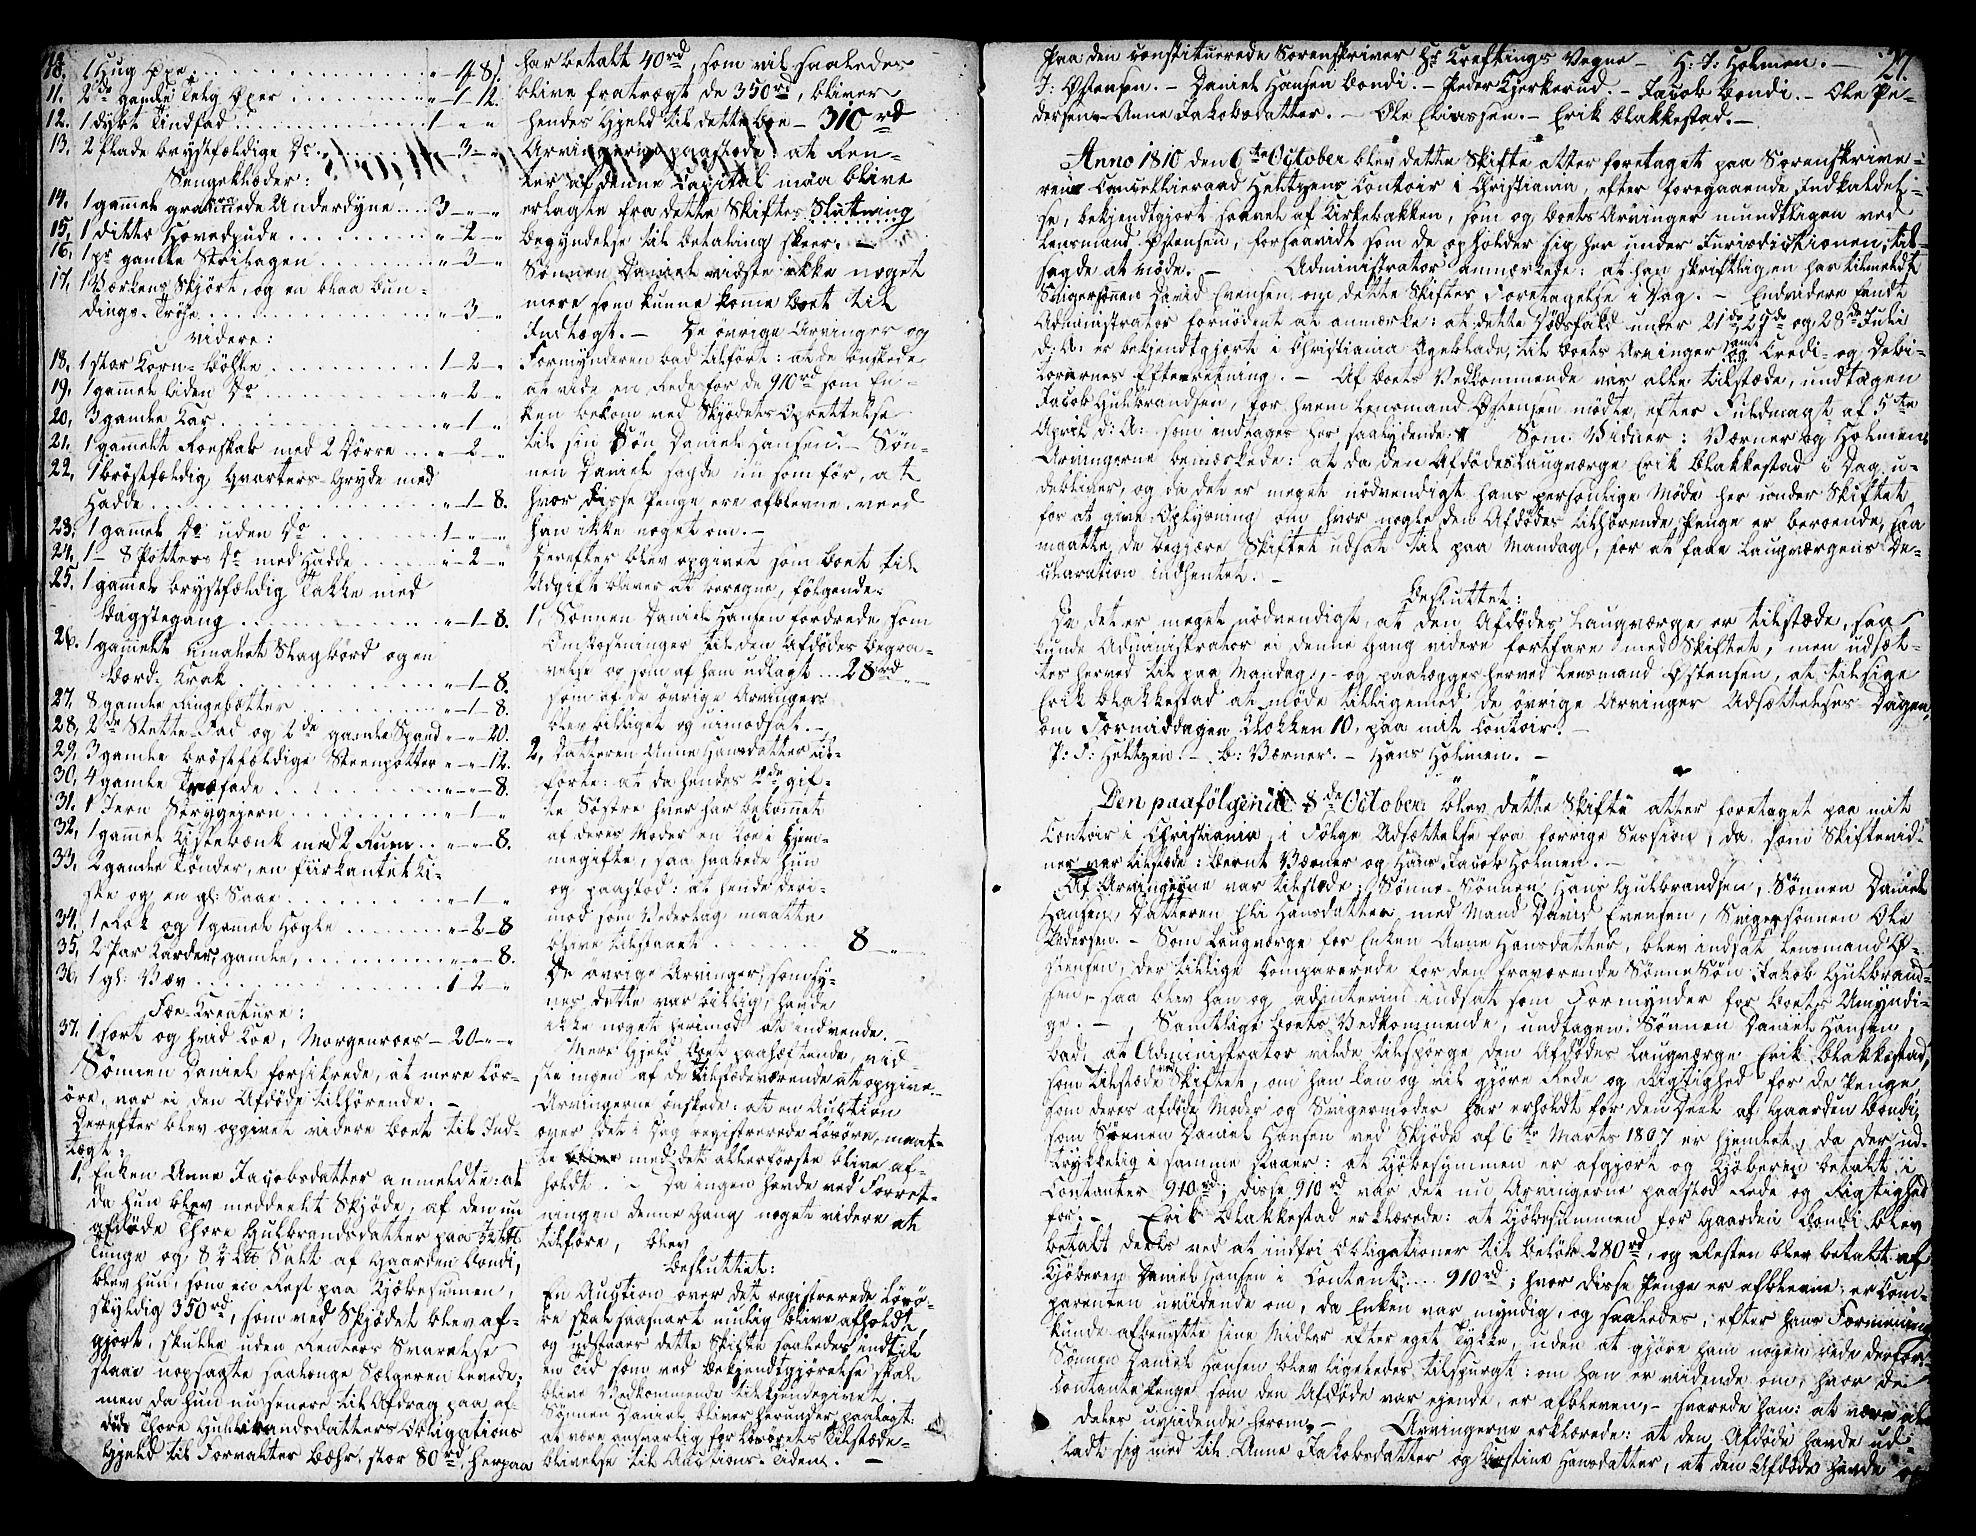 10. 1 Hug Øxe . . . " 4 8.
11. 2de gamle Telg Øxer . . . " 1 12.
12. 1 dykt Tindfad . . . 1 " "
13. 2 flade brystfældige Do . . . " 3 "
Sengeklæder:
14. 1 gammel graarandede Underdyne . . . 3 " "
15. 1 ditto Hovedpude . . . " 2 "
16. 1 pr gamle Strilagen . . . " 3 "
17. 1 Værkens Skjört, og en blaa Bun-
dings Tröje . . . " 3 "
videre:
18. 1 stor Korn-Bölle . . . 1 2 "
19. 1 gammel liden Do . . . " 2 "
20. 3 gamle Kar . . . " 1 "
21. 1 gammelt Roeskab med 2 Dörre . . . " 2 "
22. 1 bröstfældig Qvarters Gryde med
Hadde . . . " 1 8.
23. 1 gammel Do uden Do . . . 1 " "
24. 1 8 Potters Do med Hadde . . . " 2 "
25. 1 gammel brystfældig Takke med
Bagstegang . . . " 1 8.
26. 1 gammelt umalet Slagbord og en
Bord-Krak . . . " 1 8.
27. 8 gamle Ringebötter . . . " 1 8.
28. 2de Slette-Fad og 2de gamle Spand " " 20.
29. 3 gamle bröstfældige Steenpotter " " 12.
30. 4 gamle Træfade . . . " " 8.
31. 1 Jern Strygejern . . . " 1 "
32. 1 gammel Kistebænk med 2 Rum . . . " " 8.
33. 2 gamle Tönder, en fiirkantet Ki-
ste og en gl: Saae . . . " 1 "
34. 1 Rok og 1 gammel Högle . . . " 2 8
35. 2 Par Karder, gamle, . . . " " 8.
36. 1 gl: Væv . . . 1 2 "
Fæe-Kreature:
37. 1 sort og hvid Koe, Morgenroes 20 " "
Sönnen Daniel forsikrede, at mere Lös-
öre, var ei den Afdöde tilhörende. -
Derefter blev opgivet videre Boet til Ind-
tægt:
1. Enken Anne Jacobsdatter anmeldte: at
da hun blev meddeelt Skjöde, af den nu
afdöde Thore Gulbrandsdatter paa 1/2
Tunge og 8 1/4 Salt af Gaarden Bondi,
blev hun, som en Rest paa Kjöbesumen,
skyldig 350rd, som ved Skjödet blev af-
gjort, skulle uden Renters Svarelse
staae uopsagte saalænge Sælgeren levede;
men da hun nu senere til Afdrag paa af-
döde Thore Gulbrandsdatters Obligations
Gjeld til Forvalter Bæhr, stor 80rd, herpaa
har betalt 40rd, som vil saaledes
blive fratrægt de 350rd, bliver
hendes Gjeld til dette Boe - 310rd
Arvingerne paastode: at Ren-
ter af denne Capital maa blive
erlagte fra dette Skiftes Slutning
begyndelse til Betaling skeer. -
Sönnen Daniel vidste ikke noget
mere som kunne kome Boet til
Indtægt. - De övrige Arvinger og
Formynderen bad tilfört: at de önskede
at vide en Rede for de 910rd som En-
ken bekom ved Skjödets Oprettelse
til sin Sön Daniel Hansen. - Sön-
nen Daniel sagde nu som för, at
hvor disse Penge ere afblevne, veed
han ikke noget om. -
Derefter blev opgivet som Boet til
Udgift bliver at beregne, fölgende:
1, Sönnen Daniel Hansen fordrede som
Omkostninger til den Afdödes Begra-
velse og som af ham udlagt . . . 28rd
som af de övrige Arvinger
blev billiget og uimodsat. -
2, Datteren Anne Hansdatter ud-
förte: at da hendes 2de gif-
te Söstre hver har bekommet
af deres Moder en Koe i Hjem-
megifte, saa haabede hun
og paastod: at hende deri-
mod som Vederlag maatte
blive tilstaaet . . . 8 "
De övrige Arvinger, som sy-
nes dette var billig, havde
ikke noget herimod at indvende. -
Mere Gjeld Boet paahæftende, vid-
ste ingen af de tilstedeværende at opgive. -
Arvingerne önskede: at en Auction
over det i Dag registrerede Lösöre, maat-
te med det allerförste blive af-
holdt. - Da ingen havde ved Forret-
ningen denne Gang noget videre at
tilföre, blev
Besluttet:
En Auction over det registrerede Lösö-
re skal saasnart mulig blive afholdt,
og udstaaer dette Skifte saaledes indtil
en Tid som ved Bekjendtgjörelse skal
blive Vedkommende tilkjendegivet.
Sönnen Daniel bliver herunder paalagt:
at være ansvarlig for Lösörets Tilstæde-
blivelse til Auctions Tiden. -
27.
Paa den constituerede Sorenskriver Hr Kreftings Vegne - H: J: Holmen. -
J: Østensen. - Daniel Hansen Bondi. - Peder Kjerkerud. - Jacob Bondi. - Ole Pe-
dersen - Anne Jakobsdatter. - Ole Eliassen. - Erik Blakkestad. -
Anno 1810 den 6te October blev dette Skifte atter foretaget paa Sorenskrive-
ren Cancellieraad Heltzens Contoir i Christiania, efter foregaaende Indkaldel-
se, bekjendtgjort saavel af Kirkebakken, som og Boets Arvinger mundtligen ved
Lensmand Østensen, forsaavidt som de opholder sig her under Jurisdictionen, til-
sagde at möde. - Administrator anmærkede: at han skriftligen har tilmeldt
Svigersönnen David Evensen, om dette Skiftes Foretagelse i Dag. - Endvidere fandt
Administrator fornödent at anmærke: at dette Dödsfald under 21de, 27de og 28de Juli
d: A: er bekjendtgjort i Christiania Ugeblade, til Boets Arvinger samt Credi- og Debi-
torernes Efterretning. - Af Boets Vedkommende var alle tilstæde, undtagen
Jacob Gulbrandsen, for hvem Lensmand Østensen mödte, efter Fuldmagt af 5te
April d: A: som indtages her saalydende: Som Vidner: Værner og Holmen
Arvingerne bemærkede: at da den Afdödes Laugværge Erik Blakkestad i Dag u-
debliver, og da det er meget nödvendigt hans personlige Möde her under Skiftet
for at give Oplysning om hvor nogle den Afdöde tilhörende Penge er beroende, saa
maatte de begjære Skiftet udsat til paa Mandag, for at faae Laugværgens De-
claration indhentet. -
Besluttet:
Da det er meget nödvendigt, at den Afdödes Laugværge er tilstæde, saa
kunde Administrator ei denne Gang videre fortfare med Skiftet, men udsæt-
tes herved til paa Mandag, - og paalegges herved Lensmand Østensen, at tilsige
Erik Blakkestad at möde tilligemed de övrige Arvinger Udsættelses Dagen,
om Formiddagen Klokken 10, paa mit Contoir. -
P: J: Heltzen. - B: Værner. - Hans Holmen. -
Den paafölgende 8de October blev dette Skifte atter foretaget paa mit
Contoir i Christiania, i Fölge Udsættelse fra forrige Session, da som Skiftevid-
ner var tilstæde: Bernt Værner og Hans Jacob Holmen. -
Af Arvingerne var tilstæde: Sönne-Sönnen Hans Gulbrandsen, Sönnen Daniel
Hansen, Datteren Eli Hansdatter, med Mand David Evensen, Svigersönnen Ole
Pedersen. - Som Laugværge for Enken Anne Hansdatter, blev indsat Lensmand Ø-
stensen, der tillige Comparerede for den fraværende Sönne Sön Jakob Gulbrand-
sen, - saa blev han og adinterim indsat som Formynder for Boets Umyndi-
ge. - Samtlige Boets Vedkommende, undtagen Sönnen Daniel Hansen,
bad, at Administrator vilde tilspörge den Afdödes Laugværge Erik Blakkestad,
som tilstæde ved Skiftet, om han kan og vil gjöre Rede og Rigtighed for de Penge
som deres afdöde Moder og Svigermoder har erholdt for den Deel af Gaarden Bondi,
som Sönnen Daniel Hansen ved Skjöde af 6te Marts 1807 er hjemlet, da der ud-
trykkelig i samme staaer: at Kjöbesummen er afgjort og Kjöberen betalt i
Contanter 910rd; disse 910rd var det nu Arvingerne paastod Rede og Rigtighed
for; - Erik Blakkestad erklærede: at Kjöbesummen for Gaarden Bondi blev
betalt deels ved at indfri Obligationer til Belöb 280rd, og Resten blev betalt af
Kjöberen Daniel Hansen i Contant . . . 910rd; hvor disse Penge er afblevne, er Com-
parenten uvidende om, da Enken var myndig, og saaledes, efter hans Formening
kunde afbenytte sine Midler efter eget Tykke, uden at gjöre ham nogen rede derfor.
Sönnen Daniel Hansen blev ligeledes tilspurgt: om han er vidende om, hvor de
Contante Penge som den Afdöde var ejende, er afbleven, - svarede han: at være al-
deles uvidende herom, - Arvingerne erklærede: at den Afdöde havde ud-
ladt sig med til Anne Jakobsdatter og Kirstine Hansdatter, at den Afdöde havde